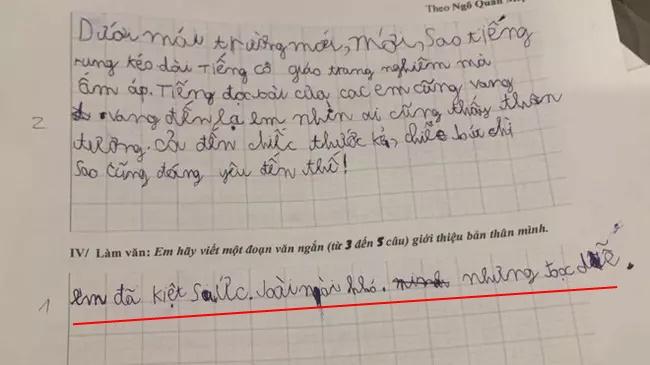 Theo Ngô Quân
Dưới mái trường mới, mới, sao tiếng
rung kéo dài Tiếng cô giáo trang nghiêm mà
ấm áp. Tiếng đọc bài của các em cũng vang
vang đến lạ em nhìn ai cũng thấy thân
tương. cả đến chiếc thước kẻ, chiếc bút chì
sao cũng đáng yêu đến thế!
2
IV/ Làm văn: Em hãy viết một đoạn văn ngắn (từ 3 đến 5 câu) giới thiệu bản thân mình.
1
em đã kiệt sức. bài này khó. những đọc dễ.